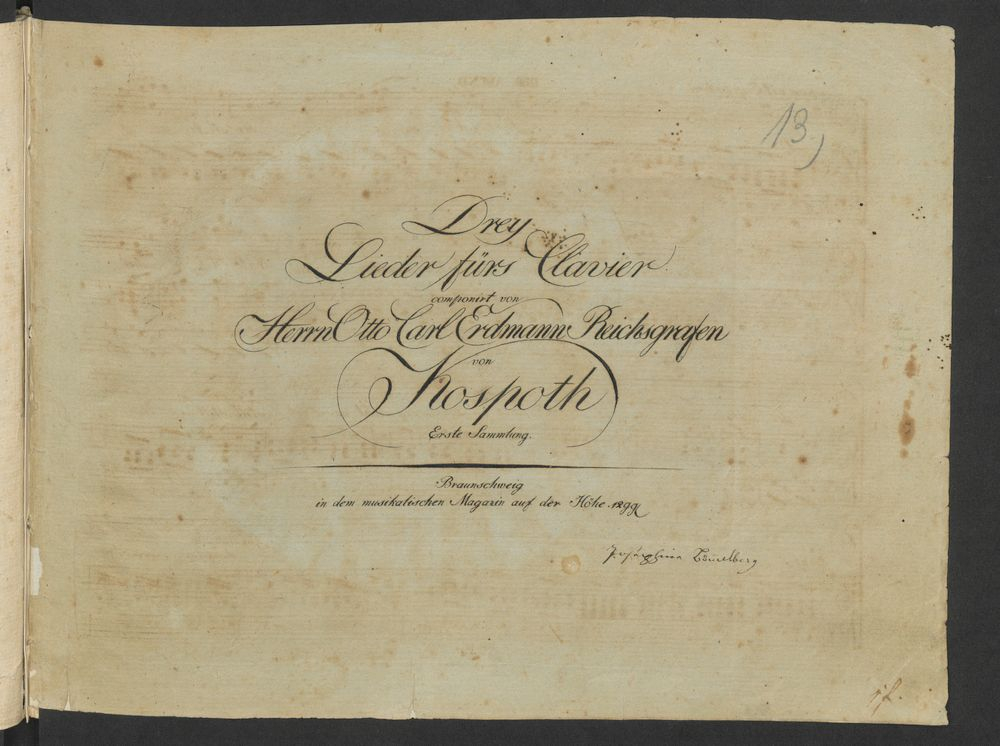 13,
Drey
Lieder fürs Clavier.
componirt von
Herrn Otto Carl Erdmann Reichsgrafen
von
Kospoth
Erste Sammlung.
Braunschweig
in dem musikalischen Magazin auf der Höhe.